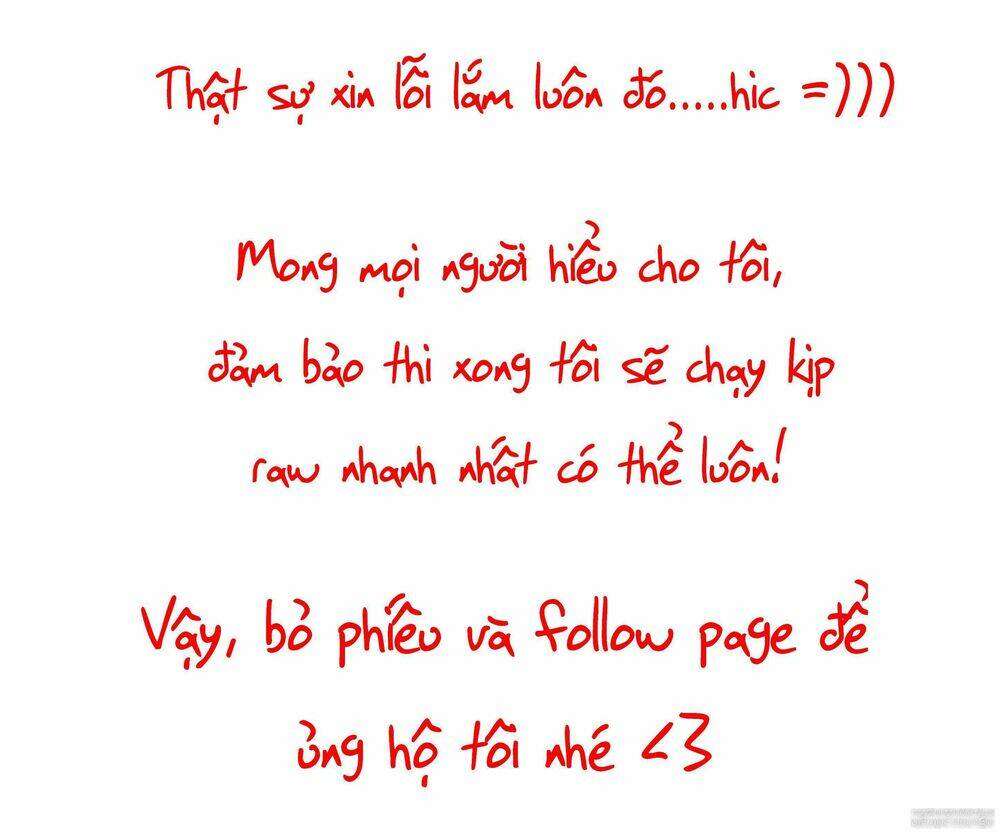 Thật sự xin lỗi lắm luôn đó.....hic =)))
Mong mọi người hiểu cho tôi,
đảm bảo thi xong tôi sẽ chạy kịp
raw nhanh nhất có thể luôn!
Vậy, bỏ phiếu và follow page để
ủng hộ tôi nhé <3